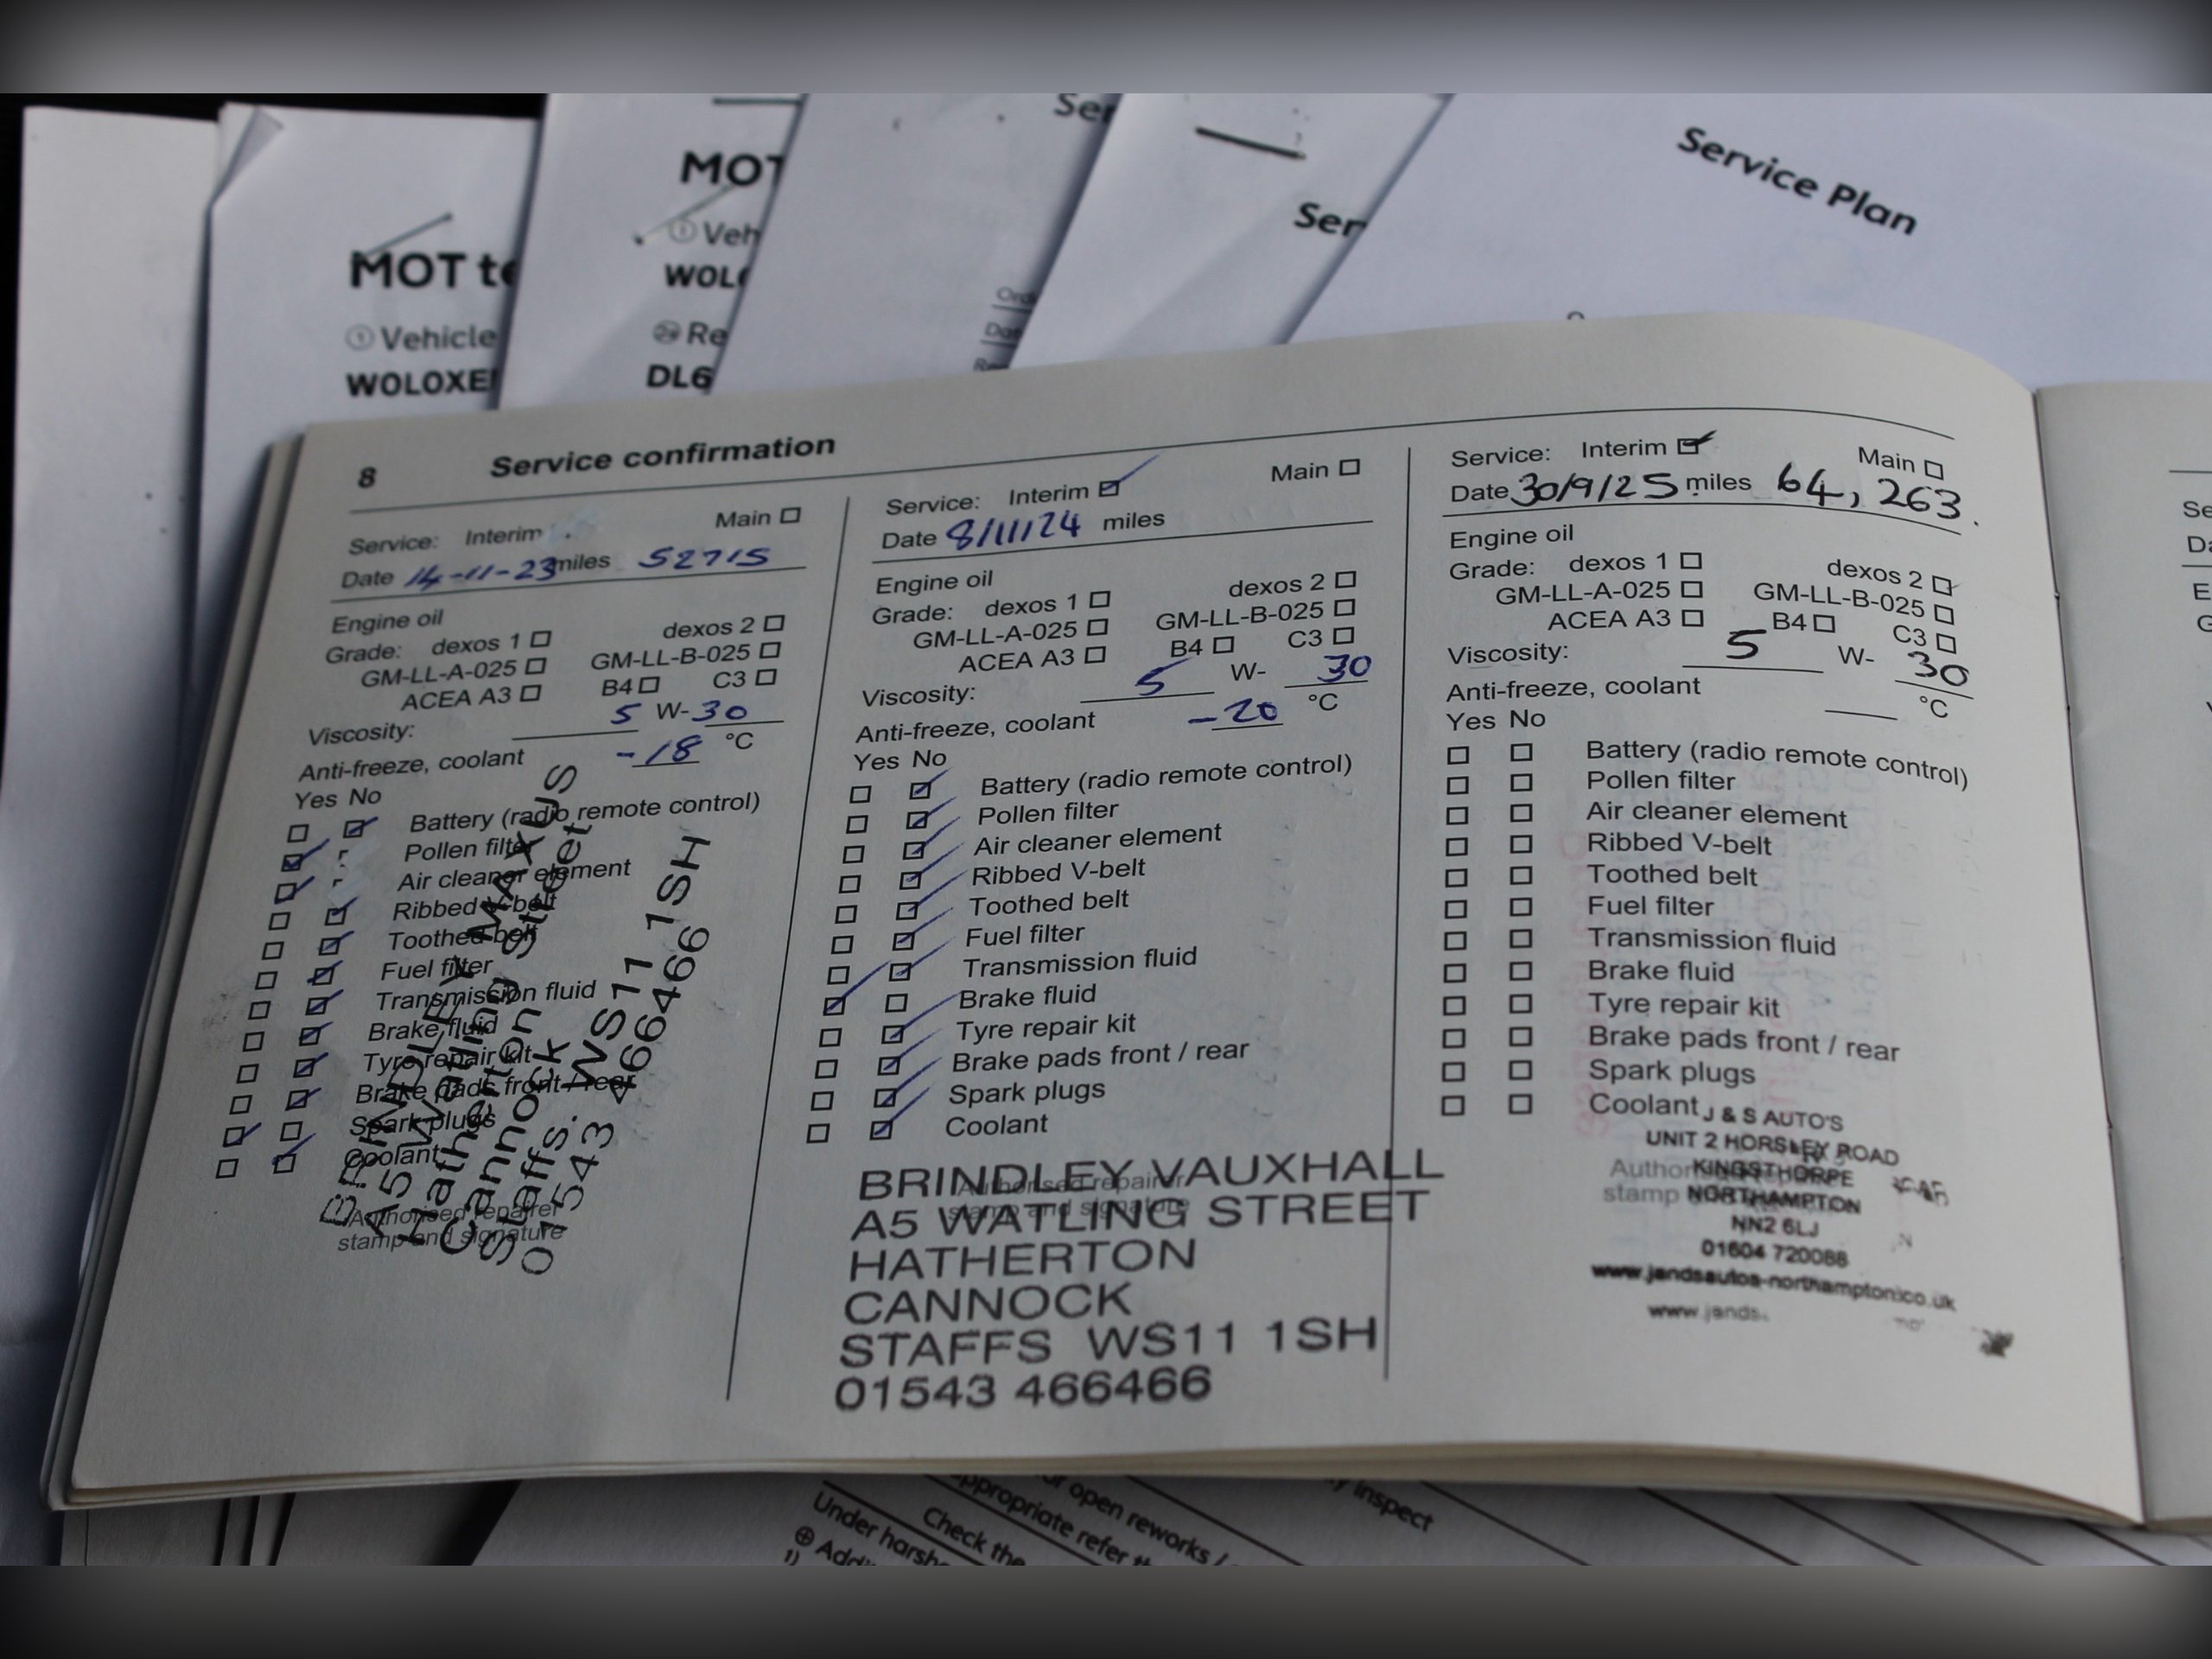 MOT
Veh
WOL
Re
DL6
MOT te
Vehicle
WOLOXE
Ser
Ser
Service Plan
8 Service confirmation
Service: Interim Main
Date 14-11-23 miles 52715
Engine oil
Grade: dexos 1 dexos 2
GM-LL-A-025 GM-LL-B-025
ACEA A3 B4 C3
Viscosity: 5 W-30
Anti-freeze, coolant -18 °C
Yes No
Battery (radio remote control)
Pollen filter
Air cleaner element
Ribbed V-belt
Toothed belt
Fuel filter
Transmission fluid
Brake fluid
Tyre repair kit
Brake pads front / rear
Spark plugs
Coolant
Authorised repairer
stamp and signature
BRINDLEY MAXUS
A5 Watling Street
Hatherton
Cannock
Staffs. WS11 1SH
01543 466466
Service: Interim Main
Date 8/11/24 miles
Engine oil
Grade: dexos 1 dexos 2
GM-LL-A-025 GM-LL-B-025
ACEA A3 B4 C3
Viscosity: 5 W- 30
Anti-freeze, coolant -20 °C
Yes No
Battery (radio remote control)
Pollen filter
Air cleaner element
Ribbed V-belt
Toothed belt
Fuel filter
Transmission fluid
Brake fluid
Tyre repair kit
Brake pads front / rear
Spark plugs
Coolant
Authorised repairer
stamp and signature
BRINDLEY VAUXHALL
A5 WATLING STREET
HATHERTON
CANNOCK
STAFFS WS11 1SH
01543 466466
Service: Interim Main
Date 30/9/25 miles 64,263.
Engine oil
Grade: dexos 1 dexos 2
GM-LL-A-025 GM-LL-B-025
ACEA A3 B4 C3
Viscosity: 5 W- 30
Anti-freeze, coolant °C
Yes No
Battery (radio remote control)
Pollen filter
Air cleaner element
Ribbed V-belt
Toothed belt
Fuel filter
Transmission fluid
Brake fluid
Tyre repair kit
Brake pads front / rear
Spark plugs
Coolant
J & S AUTO'S
UNIT 2 HORSLEY ROAD
KINGSTHORPE
NORTHAMPTON
NN2 6LJ
01604 720088
www.jandsautos-northampton.co.uk
www.jands.
stamp
y inspect
or open reworks /
appropriate refer th
Check the
Under harsh
Addi
1)